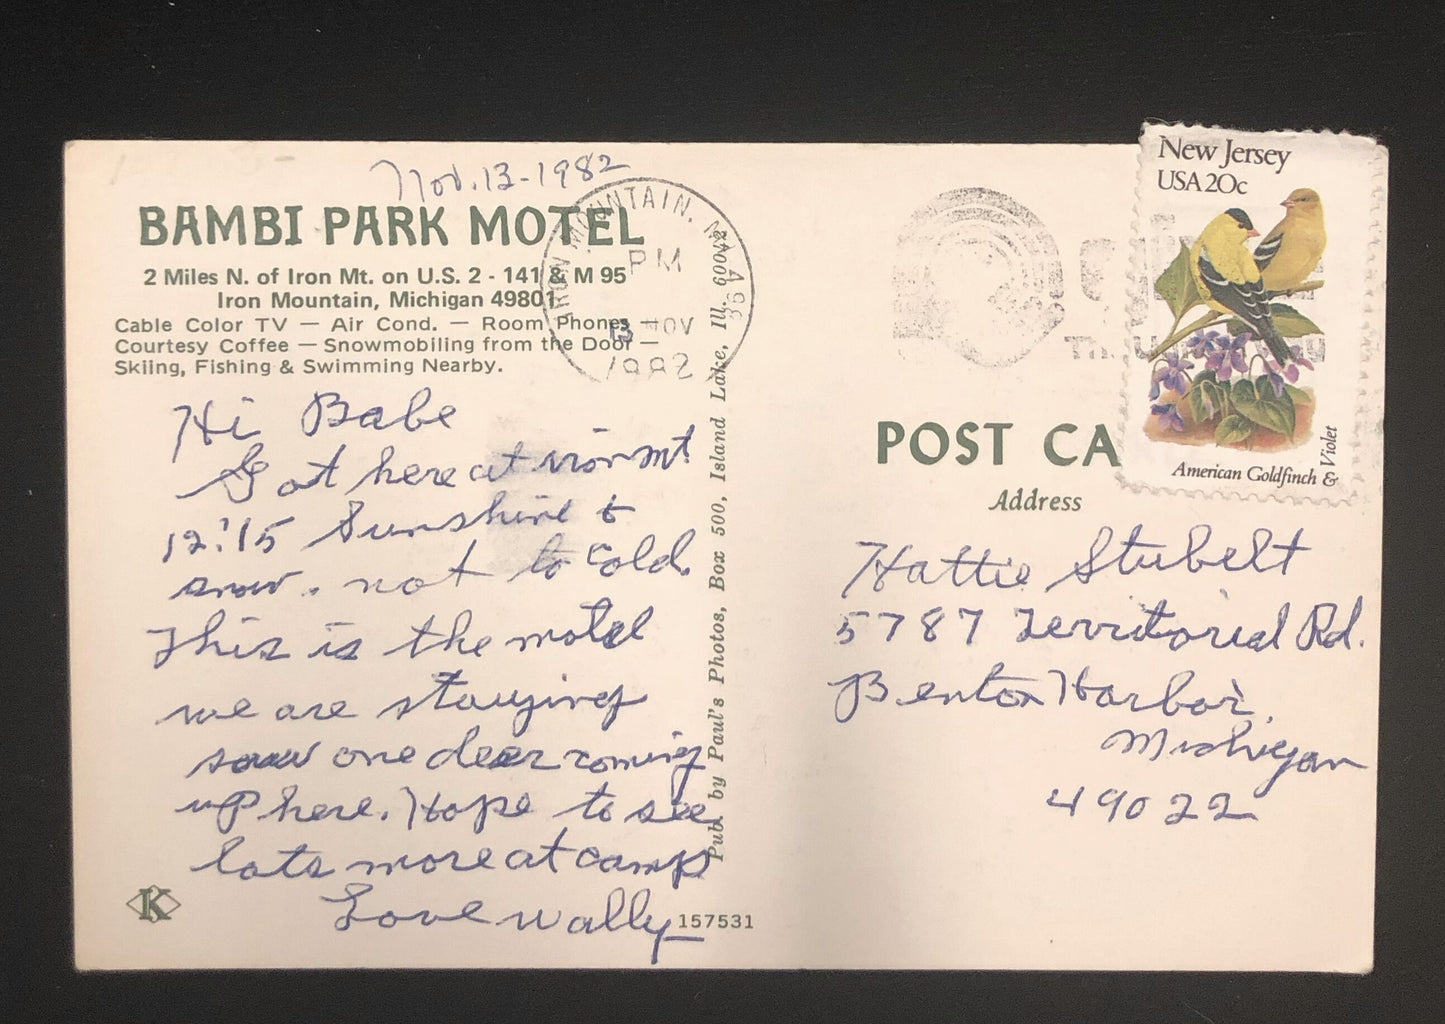 Nov. 13-1982
BAMBI PARK MOTEL
2 Miles N. of Iron Mt. on U.S. 2 - 141 & M 95
Iron Mountain, Michigan 49801
Cable Color TV — Air Cond. — Room Phones
Courtesy Coffee — Snowmobiling from the Door —
Skiing, Fishing & Swimming Nearby.
IRON MOUNTAIN, MI 498
PM
13 NOV
1982
Hi Babe
Got here at iron mt.
12:15 Sunshine &
snow. not to cold.
This is the motel
we are staying
saw one deer coming
up here. Hope to see
lots more at camp
Love Wally
K
157531
Pub. by Paul's Photos, Box 500, Island Lake, Ill. 60042
New Jersey
USA 20c
American Goldfinch & Violet
POST CA
Address
Hattie Stubelt
5787 Territorial Rd.
Benton Harbor,
Michigan
49022